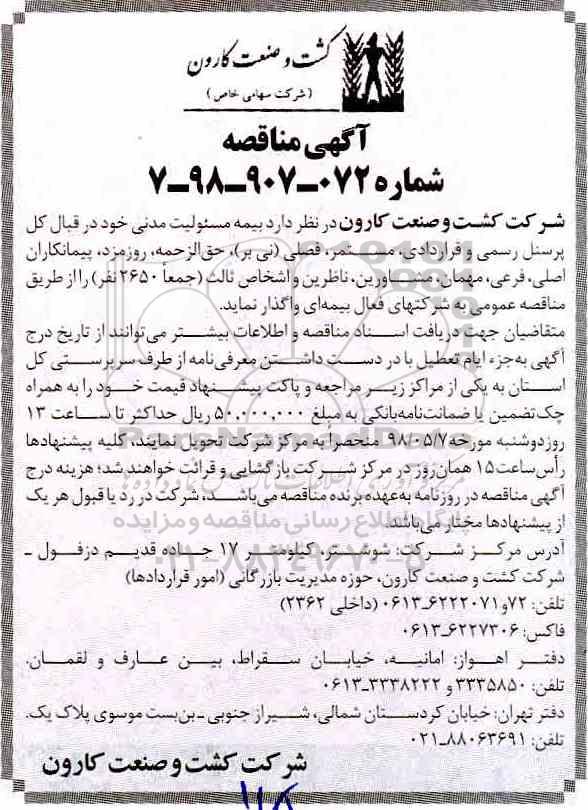 کشت و صنعت کارون
(شرکت سهامی خاص)
آگهی مناقصه
شماره ۰۷۲-۹۰۷-۹۸-۷
شرکت کشت و صنعت کارون در نظر دارد بیمه مسئولیت مدنی خود در قبال کل
پرسنل رسمی و قراردادی، مستمر، فصلی (نی بر)، حق‌الزحمه، روزمزد، پیمانکاران
اصلی، فرعی، مهمان، مشاورین، ناظرین و اشخاص ثالث (جمعاً ۲۶۵۰ نفر) را از طریق
مناقصه عمومی به شرکتهای فعال بیمه‌ای واگذار نماید.
متقاضیان جهت دریافت اسناد مناقصه و اطلاعات بیشتر می‌توانند از تاریخ درج
آگهی به‌جزء ایام تعطیل با در دست داشتن معرفی‌نامه از طرف سرپرستی کل
استان به یکی از مراکز زیر مراجعه و پاکت پیشنهاد قیمت خود را به همراه
چک تضمین یا ضمانت‌نامه بانکی به مبلغ ۵۰,۰۰۰,۰۰۰ ریال حداکثر تا ساعت ۱۳
روز دوشنبه مورخه ۹۸/۰۵/۷ منحصراً به مرکز شرکت تحویل نمایند، کلیه پیشنهادها
رأس ساعت ۱۵ همان روز در مرکز شرکت بازگشایی و قرائت خواهند شد؛ هزینه درج
آگهی مناقصه در روزنامه به‌عهده برنده مناقصه می‌باشد، شرکت در رد یا قبول هر یک
از پیشنهادها مختار می‌باشد.
آدرس مرکز شرکت: شوشتر، کیلومتر ۱۷ جاده قدیم دزفول -
شرکت کشت و صنعت کارون، حوزه مدیریت بازرگانی (امور قراردادها)
تلفن: ۷۲ و ۶۲۲۲۰۷۱-۰۶۱۳ (داخلی ۲۳۶۲)
فاکس: ۶۲۲۷۳۰۶-۰۶۱۳
دفتر اهواز: امانیه، خیابان سقراط، بین عارف و لقمان.
تلفن: ۳۳۳۵۸۵۰ و ۳۳۳۸۲۲۲-۰۶۱۳
دفتر تهران: خیابان کردستان شمالی، شیراز جنوبی - بن‌بست موسوی پلاک یک.
تلفن: ۸۸۰۶۳۶۹۱-۰۲۱
شرکت کشت و صنعت کارون
ParsNamadData
پایگاه اطلاع رسانی مناقصه و مزایده
۰۲۱-۸۸۳۴۹۶۷۰-۵